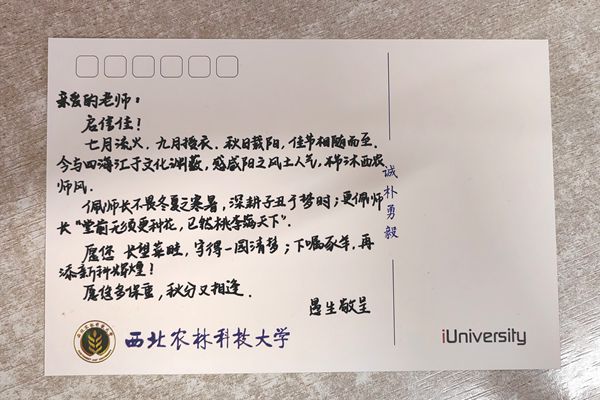 亲爱的老师：
启信佳！
七月流火，九月授衣。秋日载阳，佳节相随而至。
今与四海汇于文化渊薮，感咸阳之风土人气，沐西农
师风。
佩师长不畏冬夏之寒暑，深耕子丑之梦时；更佩师
长“堂前无须更种花，已然桃李满天下”。
愿您 长望菜畦，守得一园清梦；下瞩，再
添新科辉煌！
愿您多保重，秋分又相逢。
愚生敬呈
诚朴勇毅
西北农林科技大学
iUniversity